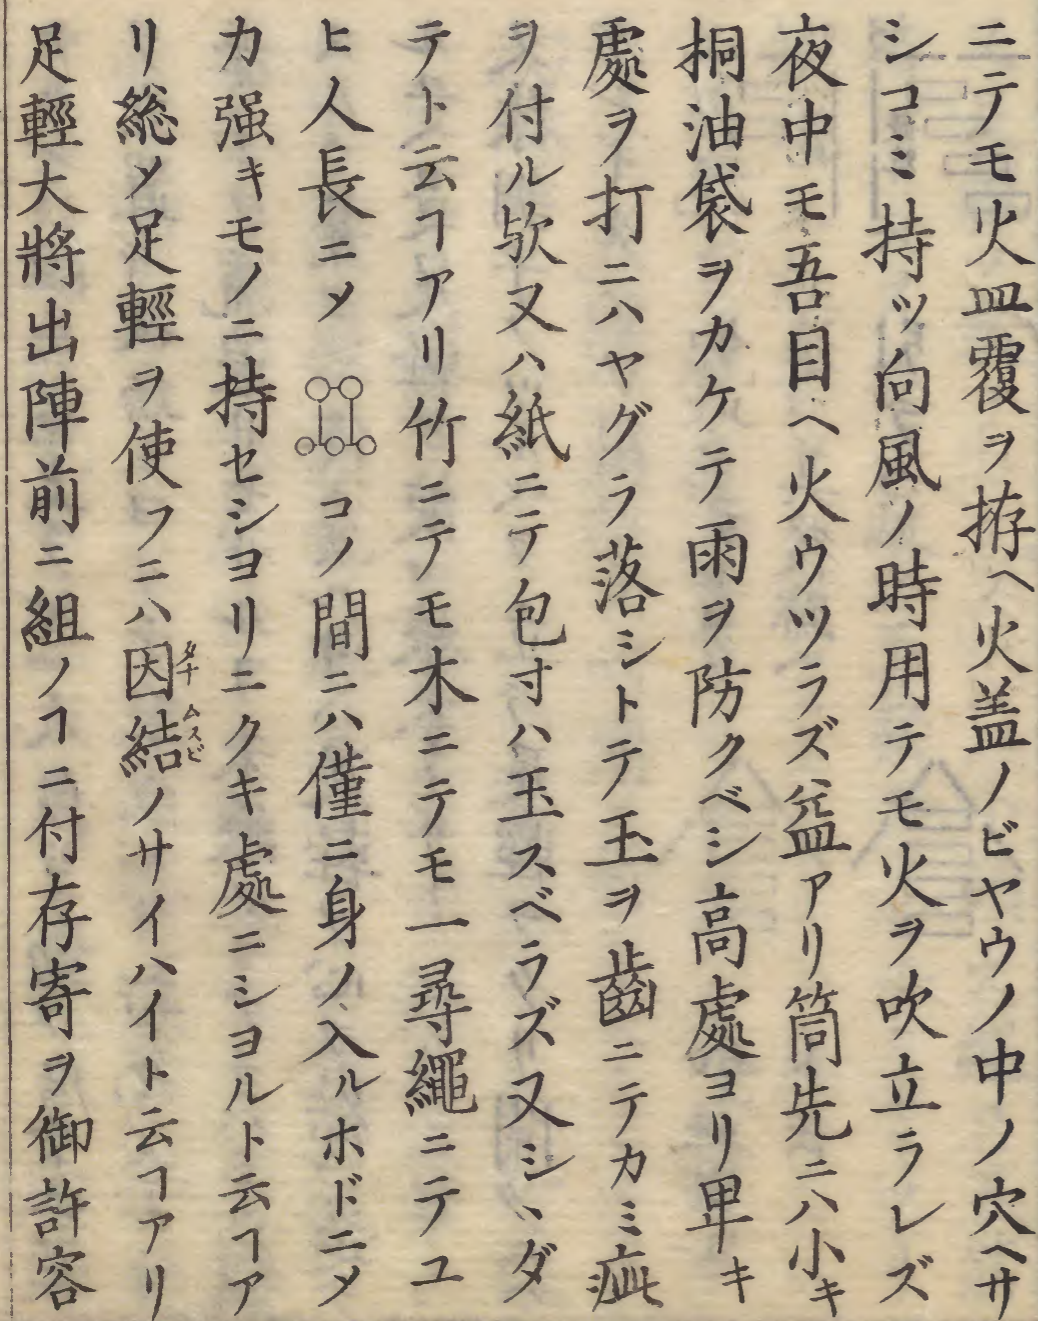 ニテモ火皿覆ヲ拵ヘ火盖ノビヤウノ中ノ穴ヘサ
シコミ持ツ向風ノ時用テモ火ヲ吹立ラレズ
夜中モ吾目ヘ火ウツラズ益アリ筒先ニハ小キ
桐油袋ヲカケテ雨ヲ防クベシ高處ヨリ卑キ
處ヲ打ニハヤグラ落シトテ玉ヲ齒ニテカミ疵
ヲ付ル欤又ハ紙ニテ包寸ハ玉スベラズ又シヽダ
テト云ヿアリ竹ニテモ木ニテモ一尋繩ニテユ
ヒ人長ニメ コノ間ニハ僅ニ身ノ入ルホドニメ
カ强キモノニ持セシヨリニクキ處ニシヨルト云ヿア
リ総メ足輕ヲ使フニハ因結ノサイハイト云ヿアリ
足輕大將出陣前ニ組ノヿニ付存寄ヲ御許容